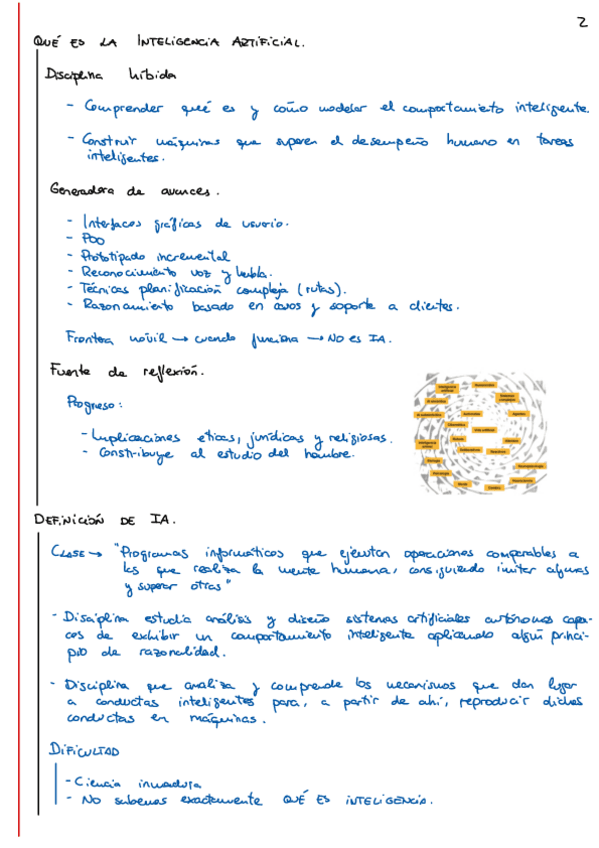 2
QUÉ ES LA INTELIGENCIA ARTIFICIAL.
Disciplina híbrida
- Comprender qué es y cómo modelar el comportamiento inteligente.
- Construir máquinas que superen el desempeño humano en tareas
inteligentes.
Generadora de avances.
- Interfaces gráficas de usuario.
- POO
- Prototipado incremental
- Reconocimiento voz y habla.
- Técnicas planificación compleja (rutas).
- Razonamiento basado en casos y soporte a clientes.
Frontera móvil → cuando funciona → NO es IA.
Fuente de reflexión.
Progreso:
- Implicaciones éticas, jurídicas y religiosas.
- Constribuye al estudio del hombre.
DEFINICIÓN DE IA.
CLASE → "Programas informáticos que ejecutan operaciones comparables a
las que realiza la mente humana, consiguiendo imitar algunas
y superar otras"
- Disciplina estudia análisis y diseño sistemas artificiales autónomos capa-
ces de exhibir un comportamiento inteligente aplicando algún princi-
pio de razonalidad.
- Disciplina que analiza y comprende los mecanismos que dan lugar
a conductas inteligentes para, a partir de ahí, reproducir dichas
conductas en máquinas.
DIFICULTAD
- Ciencia inmadura
- No sabemos exactamente QUÉ ES INTELIGENCIA.